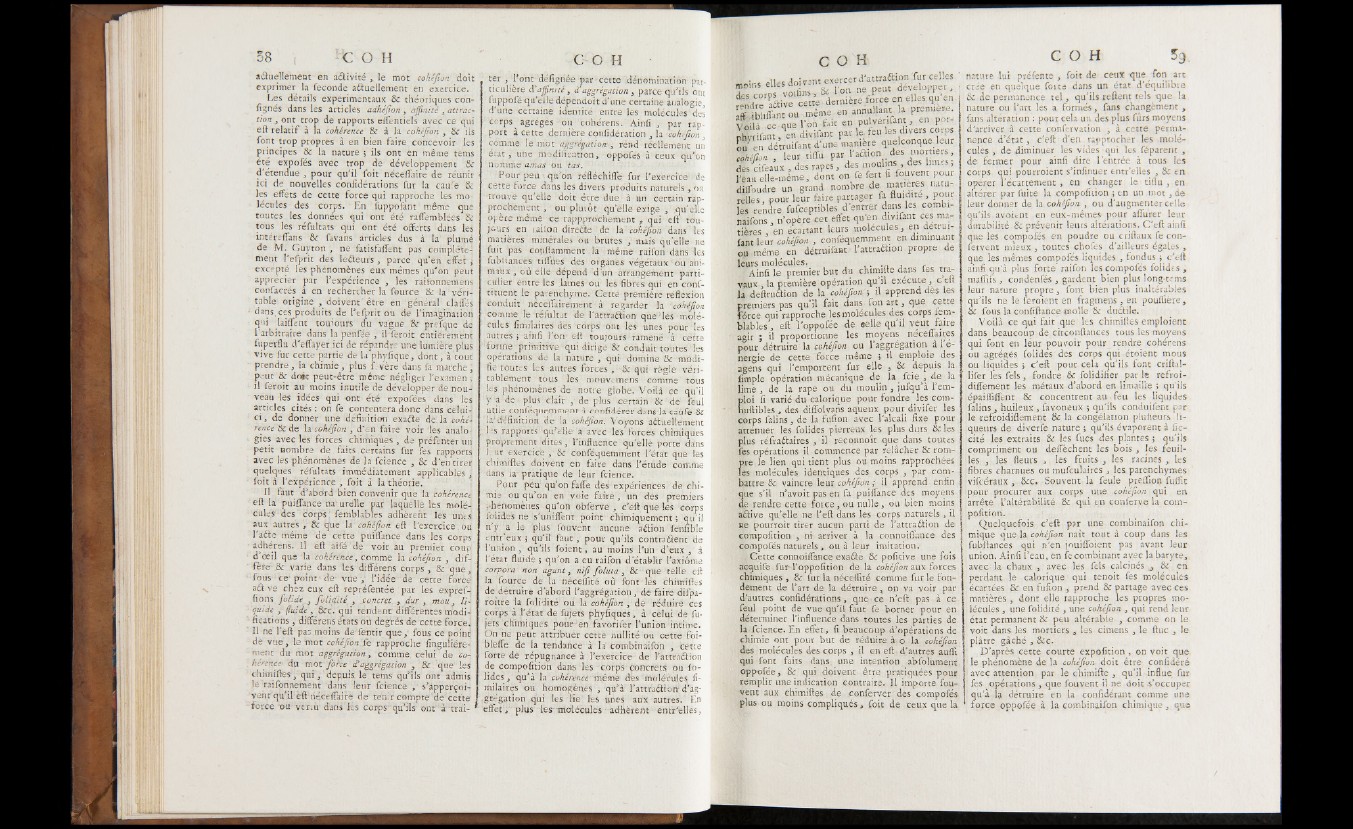 58 C O H
actuellement en activité, le mot cohésion doit
exprimer la seconde actuellement en exercice.
Les détails experimentaux & théoriques con-
signés dans les articles adhésion, affinité, attrac-
tion, ont trop de rapports essentiels avec ce qui
est relatif à la cohérence & à la cohésion, & ils
sont trop propres à en bien faire concevoir les
principes & la nature ; ils ont en même tems
été exposés avec trop de développement &
d'étendue, pour qu'il soit nécessaire de réunir
ici de nouvelles considérations sur la cause &
les effets de cette force qui rapproche les mo-
lécules des corps. En supposant même que
toutes les données qui ont été rassemblées &
tous les résultats qui ont été offerts dans les
intéressans & savans articles dus à la plume
de M. Guyton, ne satisfassent pas complète-
ment l'esprit des lecteurs, parce qu'en effet,
excepté les phénomènes eux mêmes qu'on peut
apprécier par l'expérience, les raisonnemens
consacrés à en rechercher la source & la véri-
table origine, doivent être en général classés
dans ces produits de l'esprit ou de l'imagination
qui laissent toujours du vague & presque de
l'arbitraire dans la pensée, il seroit entièrement
superflu d'essayer ici de répandre une lumière plus
vive sur cette partie de la physique, dont, à tout
prendre, la chimie, plus sévère dans sa marche,
peut & doit peut-être même négliger l'examen ;
il seroit au moins inutile de développer de nou-
veau les idées qui ont été exposées dans les
articles cités : on se contentera donc dans celui-
ci, de donner une définition exacte de la cohé-
rence & de la cohésion, d'en faire voir les analo-
gies avec les forces chimiques, de présenter un
petit nombre de faits certains sur ses rapports
avec les phénomènes de la science, & d'en tirer
quelques résultats immédiatement applicables,
soit à l'expérience, soit à la théorie.
Il faut d'abord bien convenir que la cohérence
est la puissance naturelle par laquelle les molé-
cules des corps semblables adhèrent les unes
aux autres, & que la cohésion est l'exercice ou
l'acte même de cette puissance dans les corps
adhérens. Il est aisé de voir au premier coup
d'œil que la cohérence, comme la cohésion, dif-
fère & varie dans les différens corps, & que,
sous ce point de vue, l'idée de cette force
active chez eux est représentée par les expres-
sions solide, solidité, concret, dur, mou, li-
quide, fluide, &c. qui rendent différentes modi-
fications, différens états ou degrés de cette force.
Il ne l'est pas moins de sentir que, sous ce point
de vue, le mot cohésion se rapproche singulière-
ment du mot aggrégation, comme celui de co-
hérence du mot force d'aggrégation, & que les
chimistes, qui, depuis le tems qu'ils ont admis
le raisonnement dans leur science, s'apperçoi-
vent qu'il est nécessaire de tenir compte de cette
force ou vertu dans les corps qu'ils ont à trai-
C O H
ter, l'ont désignée par cette dénomination par-
ticulière d'affinité, d'aggrégation, parce qu'ils ont
supposé qu'elle dépendoit d'une certaine analogie,
d'une certaine identité entre les molécules des
corps agrégés ou cohérens. Ainsi, par rap-
port à cette dernière considération, la cohésion,
comme le mot aggrégation, rend réellement un
état, une modification, opposés à ceux qu'on
nomme amas ou tas.
Pour peu qu'on réfléchisse sur l'exercice de
cette force dans les divers produits naturels, on
trouve qu'elle doit être due à un certain rap-
prochement, ou plutôt qu'elle exige, qu'elle
opère même ce rapprochement, qui est tou-
jours en raison directe de la cohésion dans les
matières minérales ou brutes, mais qu'elle ne
suit pas constamment la même raison dans les
substances tissues des organes végétaux ou ani-
maux, où elle dépend d'un arrangement parti-
culier entre les lames ou les fibres qui en cons-
tituent le parenchyme. Cette première reflexion
conduit nécessairement à regarder la cohésion
comme le résultat de l'attraction que les molé-
cules similaires des corps ont les unes pour les
autres ; ainsi l'on est toujours ramené à cette
forme primitive qui dirige & conduit toutes les
opérations de la nature, qui domine & modi-
fie toutes les autres forces, & qui règle véri-
tablement tous les mouvemens comme tous
les phénomènes de notre globe. Voilà ce qu'il
y a de plus clair, de plus certain & de seul
utile conséquemment à considérer dans la cause &
la définition de la cohésion. Voyons actuellement
les rapports qu'elle a avec les forces chimiques
proprement dites, l'influence qu'elle porte dans
leur exercice, & conséquemment l'état que les
chimistes doivent en faire dans l'étude comme
dans la pratique de leur science.
Pour peu qu'on fasse des expériences de chi-
mie ou qu'on en voie faire, un des premiers
phénomènes qu'on observe, c'est que les corps
solides ne s'unissent point chimiquement ; qu'il
n'y a le plus souvent aucune action sensible
entr'eux ; qu'il faut, pour qu'ils contractent de
l'union, qu'ils soient, au moins l'un d'eux, à
l'état fluide ; qu'on a eu raison d'établir l'axiôme
corpora non agunt, nisi soluta, & que telle est
la source de la nécessité où sont les chimistes
de détruire d'abord l'aggrégation, de faire dispa-
roître la solidité ou la cohésion, de réduire ces
corps à l'état de sujets physiques, à celui de su-
jets chimiques pour en favoriser l'union intime.
On ne peut attribuer cette nullité ou cette foi-
blesse de la tendance à la combinaison, cette
sorte de répugnance à l'exercice de l'attraction
de composition dans les corps concrets ou so-
lides, qu'à la cohérence même des molécules si-
milaires ou homogènes, qu'à l'attraction d'ag-
grégation qui les lie les unes aux autres. En
effet, plus les molécules adhèrent entr'elles,
C O H
moins elles doivent exercer d'attraction sur celles
des corps voisins, & l'on ne peut développer,
rendre active cette dernière force en elles qu'en
affoiblissant ou même en annullant la première.
Voilà ce que l'on fait en pulvérisant, en por-
phyrisant, en divisant par le feu les divers corps
ou en détruisant d'une manière quelconque leur
cohésion, leur tissu par l'action des mortiers,
des ciseaux, des rapes, des moulins, des limes ;
l'eau elle-même, dont on se sert si souvent pour
dissoudre un grand nombre de matières natu-
relles, pour leur faire partager sa fluidité, pour
les rendre susceptibles d'entrer dans les combi-
naisons, n'opère cet effet qu'en divisant ces ma-
tières, en écartant leurs molécules, en détrui-
sant leur cohésion, conséquemment en diminuant
ou même en détruisant l'attraction propre de
leurs molécules.
Ainsi le premier but du chimiste dans ses tra-
vaux, la première opération qu'il exécute, c'est
la destruction de la cohésion ; il apprend dès les
premiers pas qu'il fait dans son art, que cette
force qui rapproche les molécules des corps sem-
blables, est l'opposée de celle qu'il veut faire
agir ; il proportionne les moyens nécessaires
pour détruire la cohésion ou l'aggrégation à l'é-
nergie de cette force même ; il emploie des
agens qui l'emportent sur elle, & depuis la
simple opération mécanique de la scie, de la
lime, de la rape ou du moulin, jusqu'à l'em-
ploi si varié du calorique pour fondre les com-
bustibles, des dissolvans aqueux pour diviser les
corps salins, de la fusion avec l'alcali fixe pour
attenuer les solides pierreux les plus durs & les
plus réfractaires, il reconnoît que dans toutes
ses opérations il commence par relâcher & rom-
pre le lien qui tient plus ou moins rapprochées
les molécules identiques des corps, par com-
battre & vaincre leur cohésion ; il apprend enfin
que s'il n'avoit pas en sa puissance des moyens
de rendre cette force, ou nulle, ou bien moins
active qu'elle ne l'est dans les corps naturels, il
ne pourroit tirer aucun parti de l'attraction de
composition, ni arriver à la connoissance des
composés naturels, ou à leur imitation.
Cette connoissance exacte & positive une fois
acquise sur l'opposition de la cohésion aux forces
chimiques, & sur la nécessité comme sur le fon-
dement de l'art de la détruire, on va voir par
d'autres considérations, que ce n'est pas à ce
seul point de vue qu'il faut se borner pour en
déterminer l'influence dans toutes les parties de
la science. En effet, si beaucoup d'opérations de
chimie ont pour but de réduire à 0 la cohésion
des molécules des corps, il en est d'autres aussi
qui sont faits dans une intention absolument
opposée, & qui doivent être pratiquées pour
remplir une indication contraire. Il importe sou-
vent aux chimistes de conserver des composés
plus ou moins compliqués, soit de ceux que la
C O H 59
nature lui présente, soit de ceux que son art
crée en quelque sorte dans un état d'équilibre
& de permanence tel, qu'ils restent tels que la
nature ou l'art les a formés, sans changement,
sans altération : pour cela un des plus sûrs moyens
d'arriver à cette conservation, à cette perma-
nence d'état, c'est d'en rapprocher les molé-
cules, de diminuer les vides qui les séparent,
de fermer pour ainsi dire l'entrée à tous les
corps qui pourroient s'insinuer entr'elles, & en
opérer l'écartement, en changer le tissu, en
altérer par suite la composition ; en un mot, de
leur donner de la cohésion, ou d'augmenter celle
qu'ils avoient en eux-mêmes pour assurer leur
durabilité & prévenir leurs altérations. C'est ainsi
que les composés en poudre ou cristaux se con-
servent mieux, toutes choses d'ailleurs égales,
que les mêmes composés liquides, fondus ; c'est
ainsi qu'à plus forte raison les composés solides,
massifs, condensés, gardent bien plus long-tems
leur nature propre, sont bien plus inaltérables
qu'ils ne le seroient en fragmens, en poussière,
& sous la consistance molle & ductile.
Voilà ce qui fait que les chimistes emploient
dans beaucoup de circonstances tous les moyens
qui sont en leur pouvoir pour rendre cohérens
ou agrégés solides des corps qui étoient mous
ou liquides ; c'est pour cela qu'ils font cristal-
liser les sels, fondre & solidifier par le refroi-
dissement les métaux d'abord en limaille ; qu'ils
épaississent & concentrent au feu les liquides
salins, huileux, savoneux ; qu'ils conduisent par
le refroidissement & la congélation plusieurs li-
queurs de diverse nature ; qu'ils évaporent à sic-
cité les extraits & les sucs des plantes ; qu'ils
compriment ou dessèchent les bois, les feuil-
les, les fleurs, les fruits, les racines, les
fibres charnues ou musculaires, les parenchymes
viscéraux, &c. Souvent la seule pression suffit
pour procurer aux corps une cohésion qui en
arrête l'altérabilité & qui en conserve la com-
position.
Quelquefois c'est par une combinaison chi-
mique que la cohésion naît tout à coup dans les
substances qui n'en jouissoient pas avant leur
union. Ainsi l'eau, en se combinant avec la baryte,
avec la chaux, avec les sels calcinés, & en
perdant le calorique qui tenoit ses molécules
écartées & en fusion, prend & partage avec ces
matières, dont elle rapproche les propres mo-
lécules, une solidité, une cohésion, qui rend leur
état permanent & peu altérable, comme on le
voit dans les mortiers, les cimens, le stuc, le
plâtre gâché, &c.
D'après cette courte exposition, on voit que
le phénomène de la cohésion doit être considéré
avec attention par le chimiste, qu'il influe sur
ses opérations, que souvent il ne doit s'occuper
qu'à la détruire en la considérant comme une
force opposée à la combinaison chimique, que